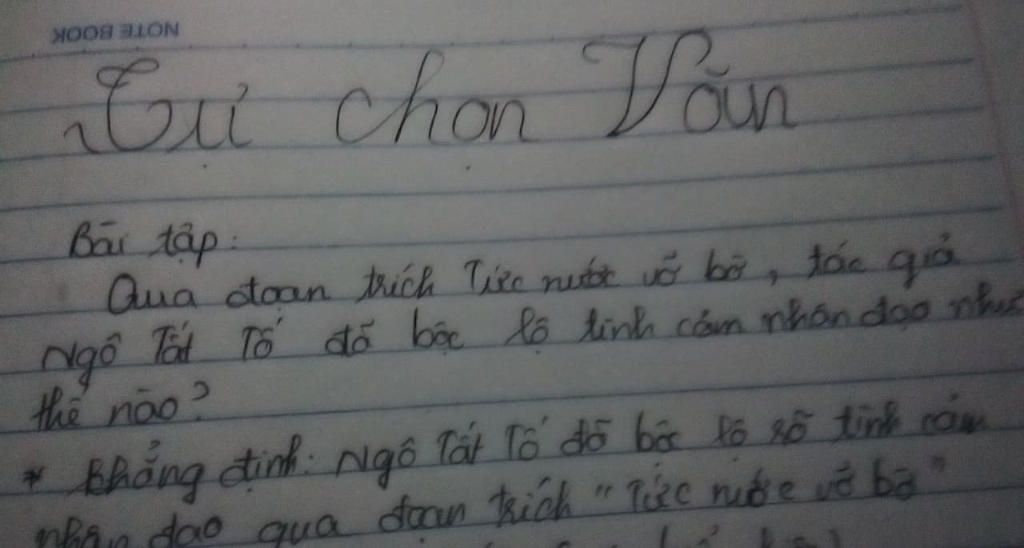 NOTE BOOK
Tự chọn Văn
Bài tập:
Qua đoạn trích Tức nước vỡ bờ, tác giả
Ngô Tất Tố đã bộc lộ tình cảm nhân đạo như
thế nào?
* Khẳng định: Ngô Tất Tố đã bộc lộ rõ tình cảm
nhân đạo qua đoạn trích "Tức nước vỡ bờ"